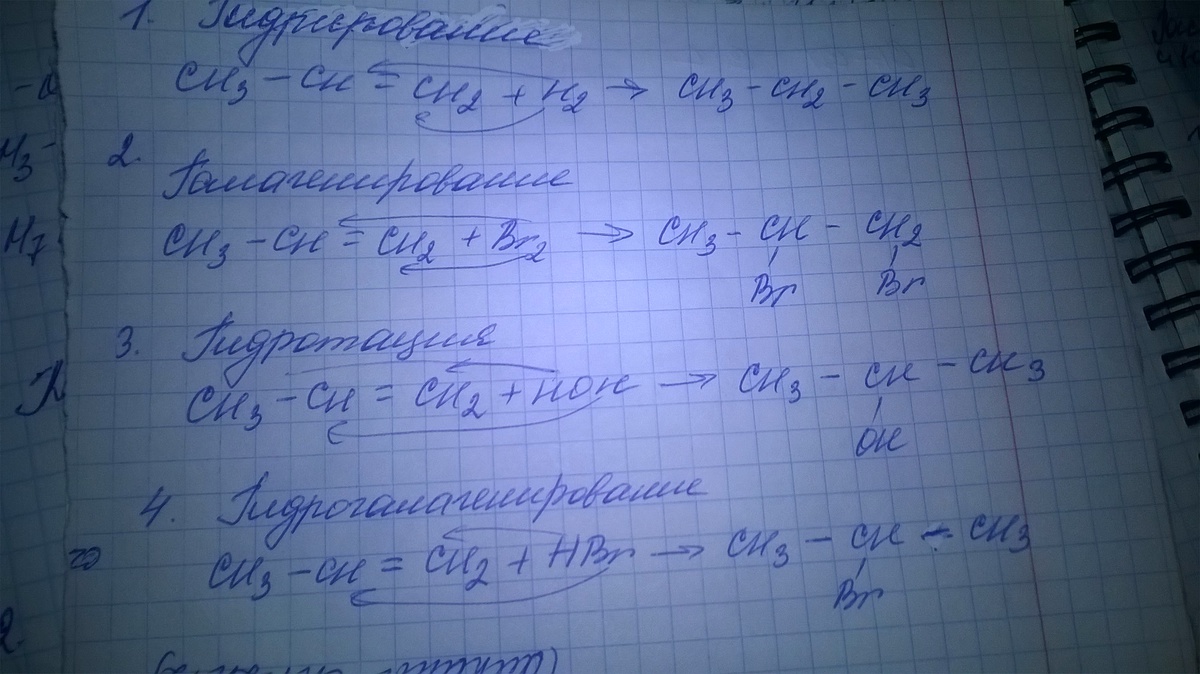 1. Гидрирование
CH₃ – CH = CH₂ + H₂ → CH₃ – CH₂ – CH₃
2.
Галагенирование
CH₃ – CH = CH₂ + Br₂ → CH₃ – CH – CH₂
Br Br
3. Гидротация
CH₃ – CH = CH₂ + HOH → CH₃ – CH – CH₃
OH
4. Гидрогалагенирование
CH₃ – CH = CH₂ + HBr → CH₃ – CH – CH₃
Br